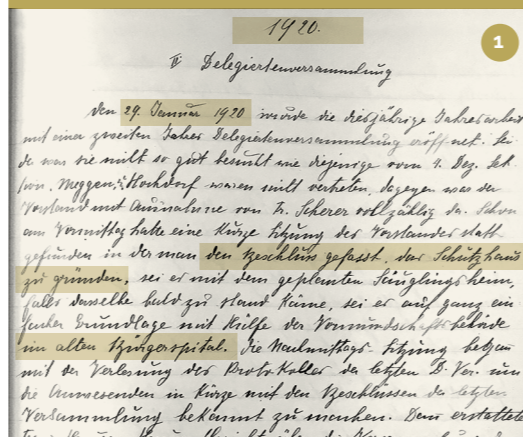 1920.
1
II Delegiertenversammlung
Den 29. Januar 1920 wurde die diesjährige Jahresarbeit
mit einer zweiten Jahres Delegiertenversammlung eröffnet. Lei-
de war sie nicht so gut besucht wie diejenige vom 9. Dez.
Meggen, Hochdorf waren nicht vertreten, dagegen war der
Vorstand mit Ausnahme von Fr. Scherer vollzählig da. Schon
am Vormittag hatte eine kurze Sitzung des Vorstandes statt
gefunden in der man den Beschluss gefasst, das Schutzhaus
zu gründen, sei er mit dem geplanten Säuglingsheim,
falls dasselbe bald zu stand käme, sei er auf ganz ein
facher Grundlage mit Hülfe der Vormundschaftsbehörde
im alten Bürgerspital. Die Nachmittags-Sitzung begann
mit der Verlesung des Protokolles der letzten D. Ver. um
die Anwesenden in Kürze mit den Beschlüssen der letzten
Versammlung bekannt zu machen. Dann erstattete